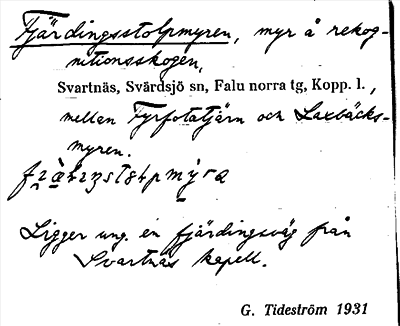 Fjärdingsstolpmyren, myr å rekog-
nitionsskogen,
Svartnäs, Svärdsjö sn, Falu norra tg, Kopp. l.,
mellan Fyrfotatjärn och Laxbäcks-
myren.
Ligger ung. en fjärdingsväg från
Svartnäs kapell.
G. Tideström 1931